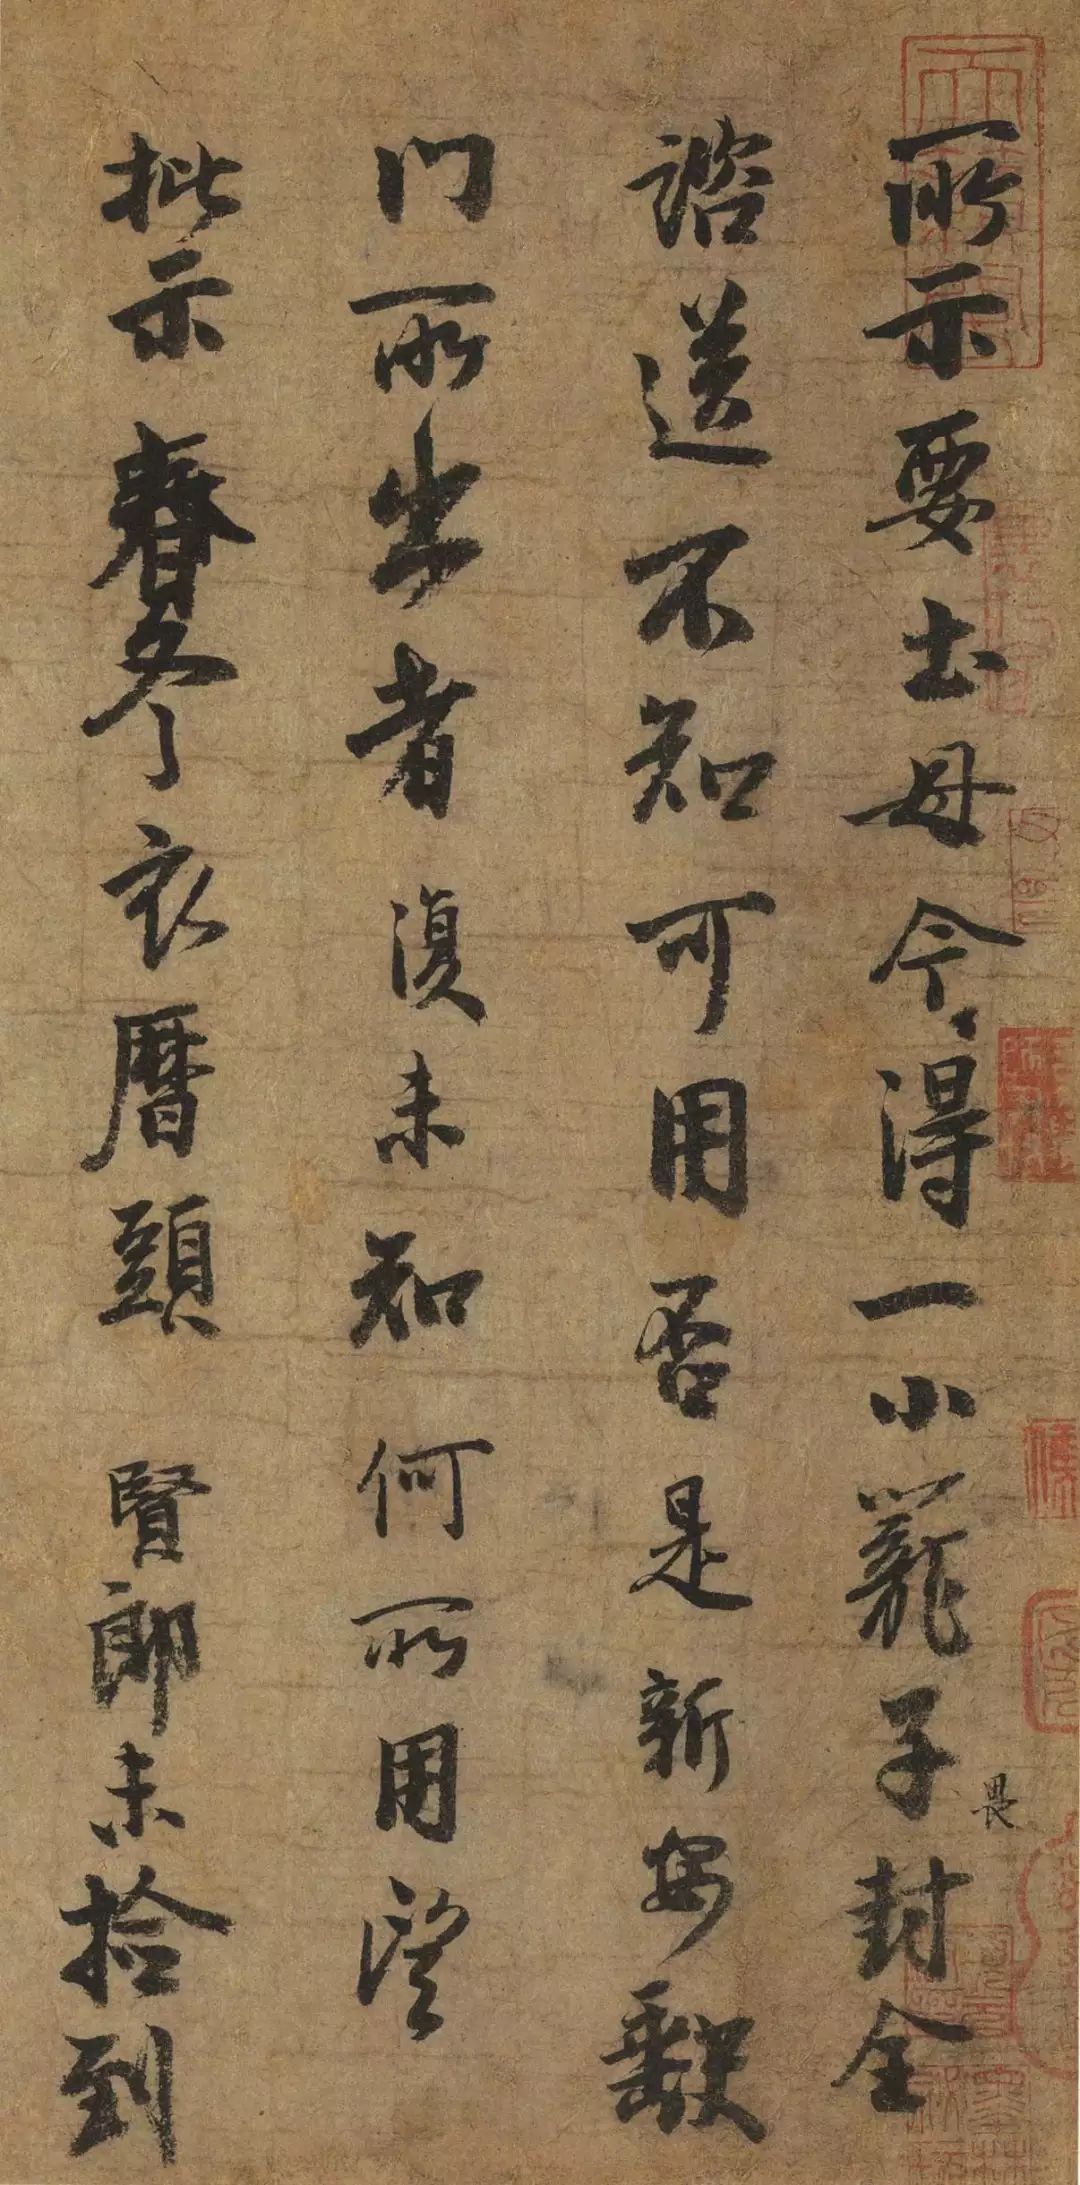 所示要土母今得一小籠子封全
諮送不知可用否是新安缺
门所出者復未知何所用望
批示春冬衣曆頭賢郎未拾到
畏